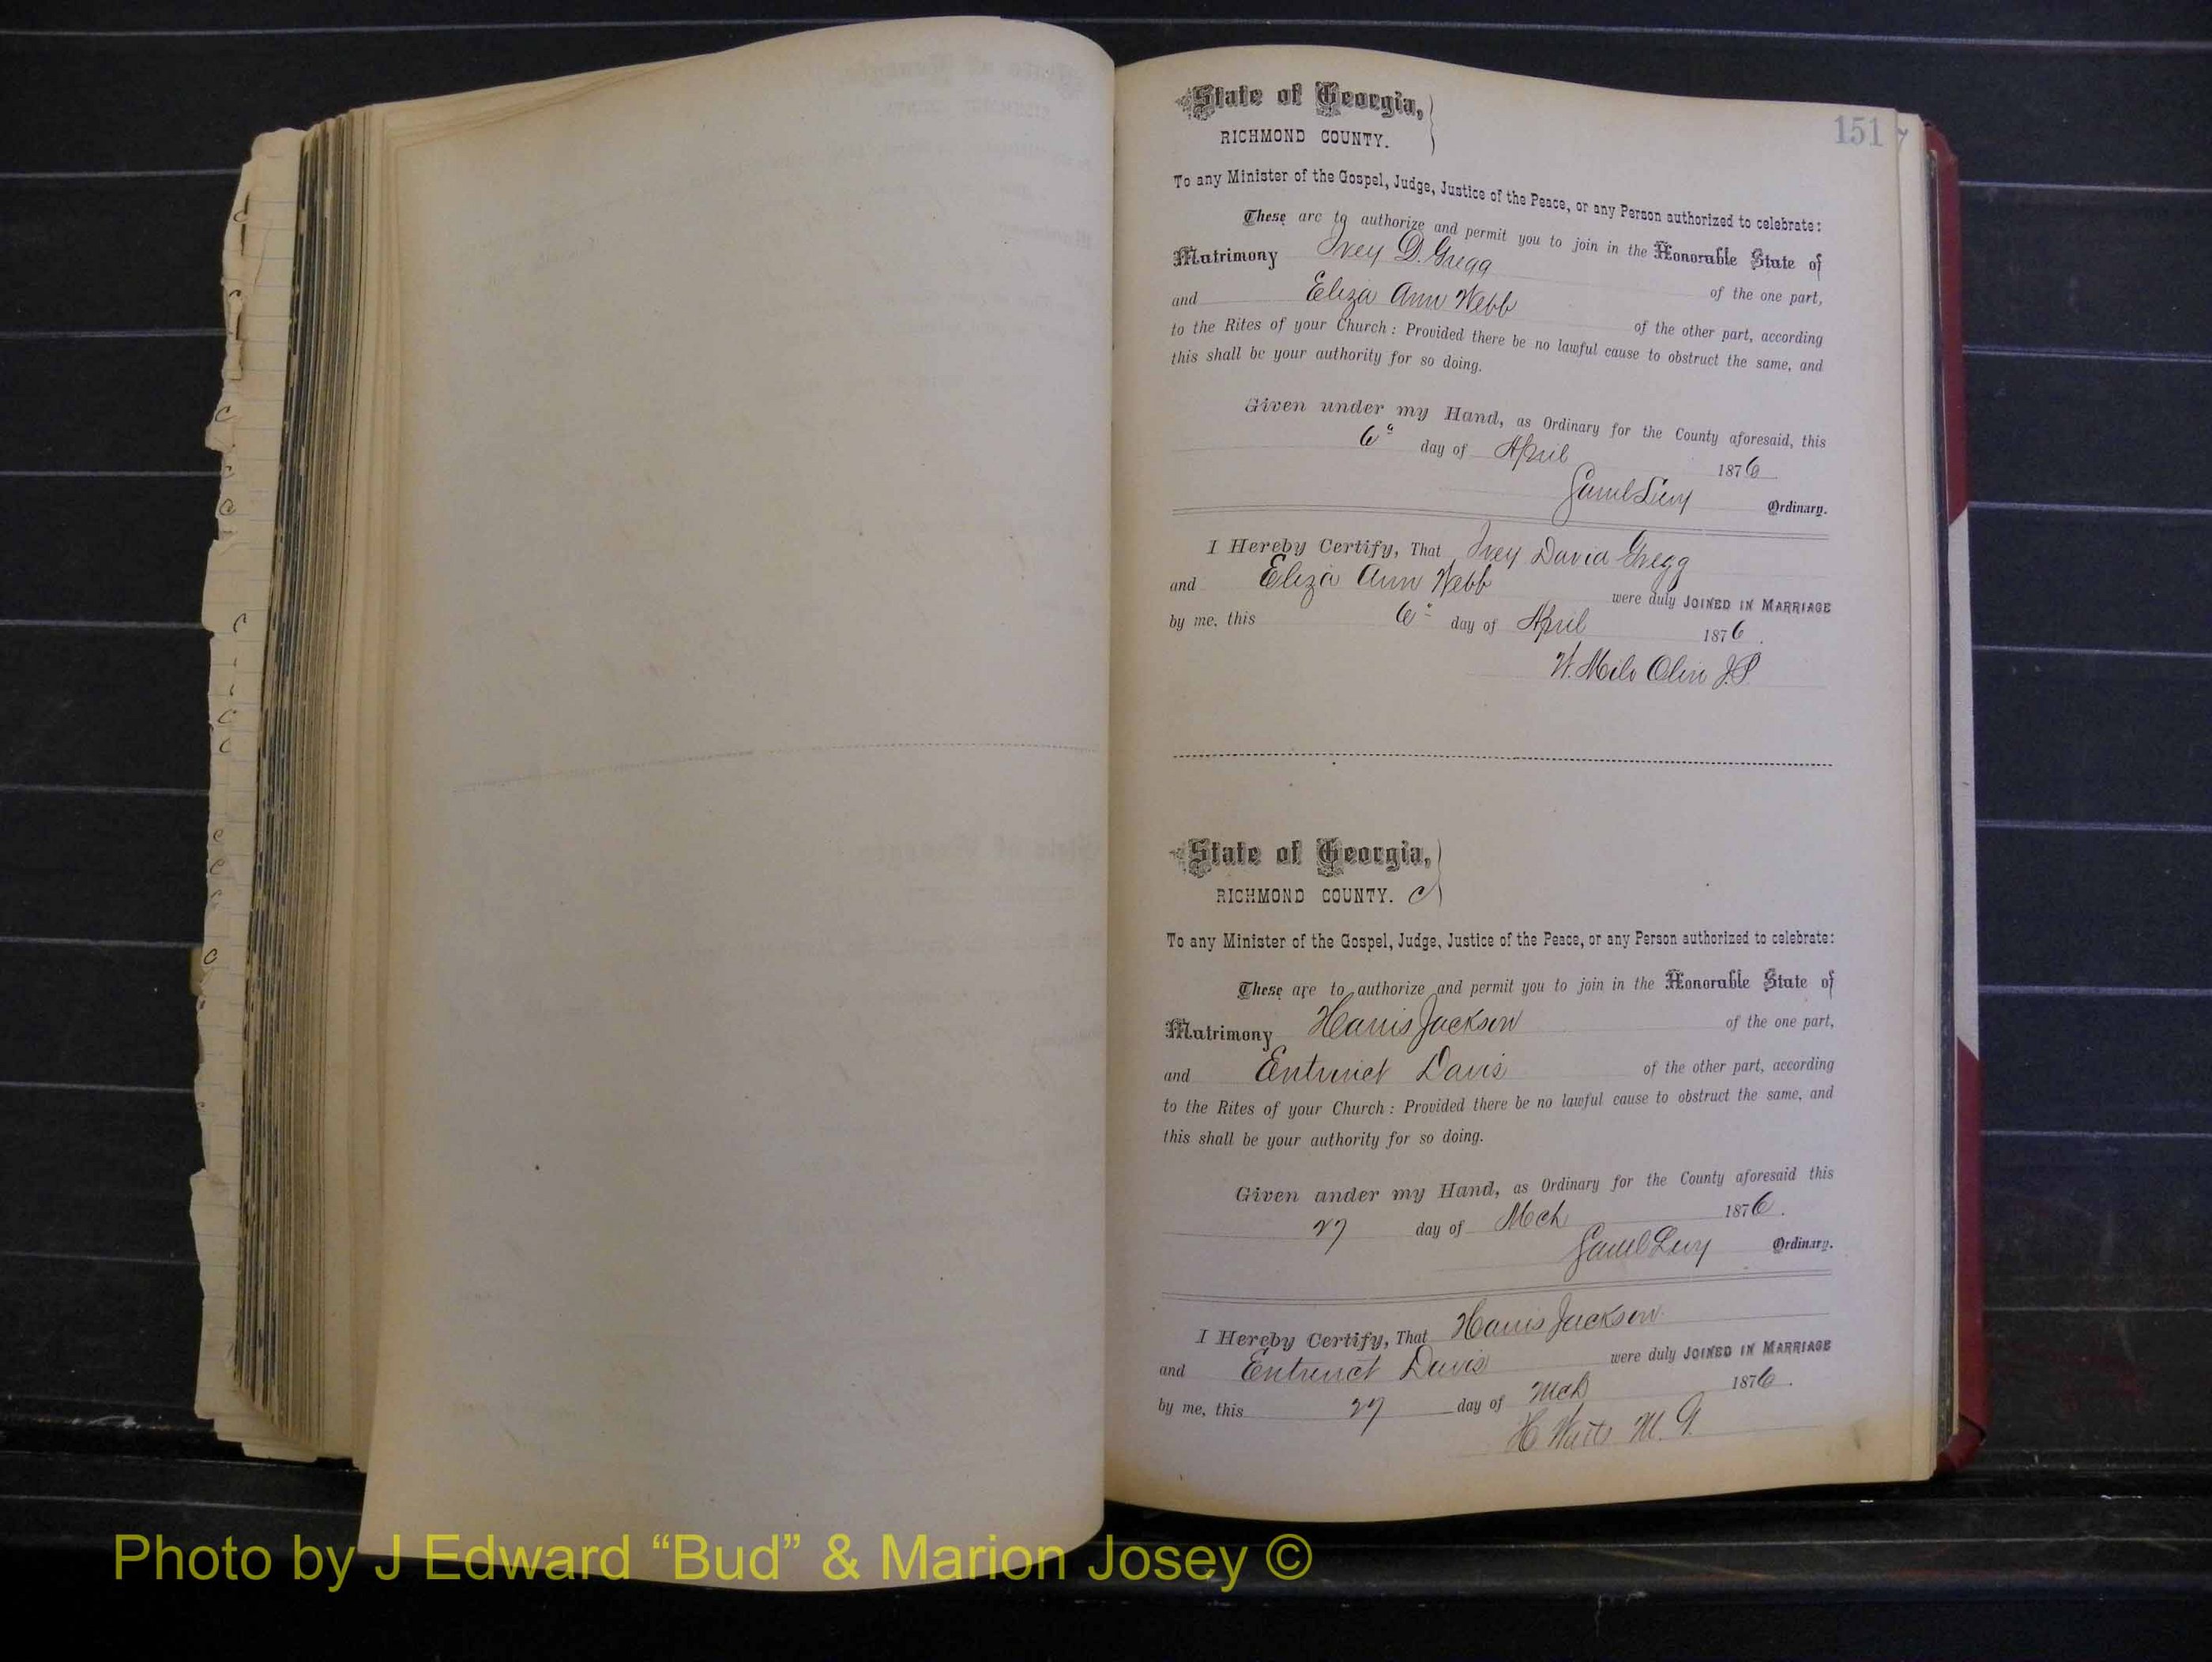 151
State of Georgia,
RICHMOND COUNTY.
To any Minister of the Gospel, Judge, Justice of the Peace, or any Person authorized to celebrate:
These are to authorize and permit you to join in the Honorable State of
Matrimony Ivey D. Gregg of the one part,
and Eliza Ann Webb of the other part, according
to the Rites of your Church: Provided there be no lawful cause to obstruct the same, and
this shall be your authority for so doing.
Given under my Hand, as Ordinary for the County aforesaid, this
6" day of April 1876
Saml Levy Ordinary.
I Hereby Certify, That Ivey David Gregg
and Eliza Ann Webb were duly JOINED IN MARRIAGE
by me, this 6" day of April 1876.
W. Milo Olin J.P.
State of Georgia,
RICHMOND COUNTY. C
To any Minister of the Gospel, Judge, Justice of the Peace, or any Person authorized to celebrate:
These are to authorize and permit you to join in the Honorable State of
Matrimony Harris Jackson of the one part,
and Davis of the other part, according
to the Rites of your Church: Provided there be no lawful cause to obstruct the same, and
this shall be your authority for so doing.
Given under my Hand, as Ordinary for the County aforesaid this
27 day of Mch 1876.
Saml Levy Ordinary.
I Hereby Certify, That Harris Jackson
and Davis were duly JOINED IN MARRIAGE
by me, this 27 day of Mch 1876.
H Watts M. G.
Photo by J Edward “Bud” & Marion Josey ©